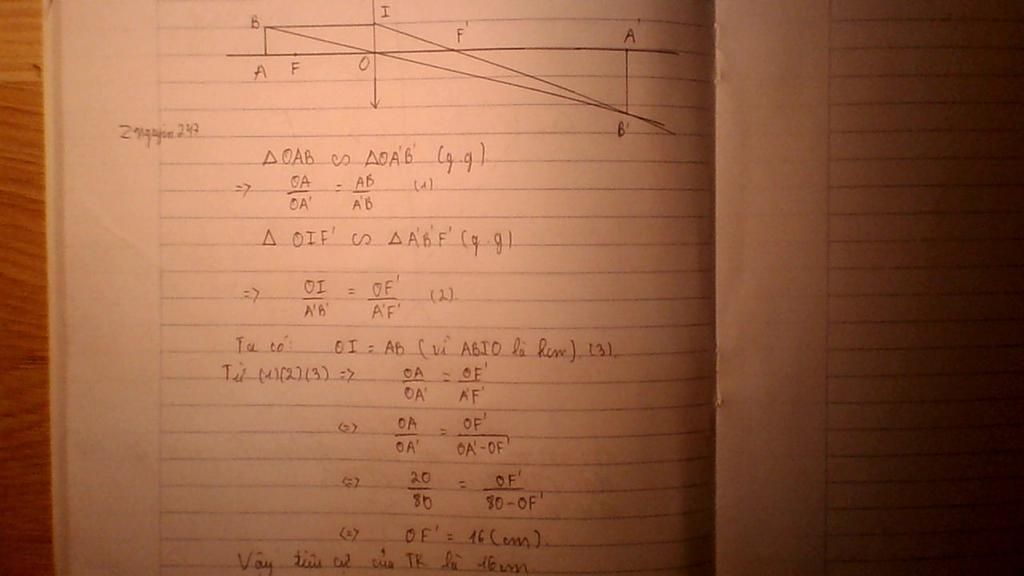 B I F' A'
A F O
B'
ΔOAB ∽ ΔOA'B' (g.g)
=> OA/OA' = AB/A'B' (1)
Δ OIF' ∽ ΔA'B'F' (g.g)
=> OI/A'B' = OF'/A'F' (2).
Ta có: OI = AB (vì ABIO là hcn). (3).
Từ (1)(2)(3) => OA/OA' = OF'/A'F'
<=> OA/OA' = OF'/OA'-OF'
<=> 20/80 = OF'/80-OF'
<=> OF' = 16 (cm).
Vậy tiêu cự của TK là 16cm